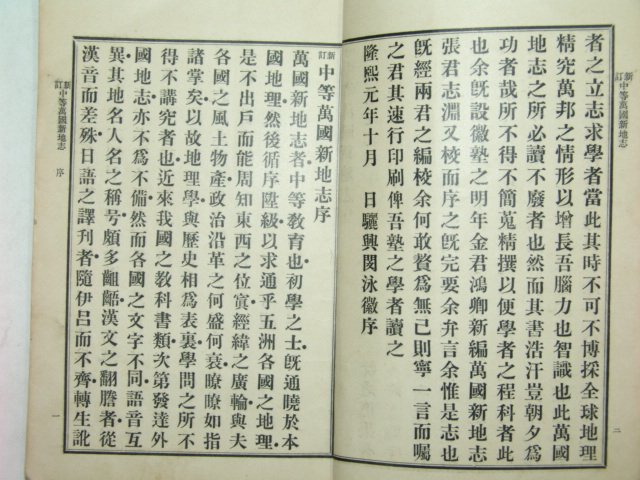 新訂中等萬國新地志
二
者之立志求學者當此其時不可不博採全球地理
精究萬邦之情形以增長吾腦力也智識也此萬國
地志之所必讀不廢者也然而其書浩汗豈朝夕爲
功者哉所不得不簡蒐精撰以便學者之程科者此
也余旣設徽塾之明年金君鴻卿新編萬國新地志
張君志淵又校而序之旣完要余弁言余惟是志也
旣經兩君之編校余何敢贅爲無已則寧一言而囑
之君其速行印刷俾吾塾之學者讀之
隆熙元年十月　日驪興閔泳徽序
新訂中等萬國新地志序
萬國新地志者中等敎育也初學之士旣通曉於本
國地理然後循序陞級以求通乎五洲各國之地理
是不出戶而能周知東西之位寘經緯之廣輪與夫
各國之風土物產政治沿革之何盛何衰瞭瞭如指
諸掌矣以故地理學與歷史相爲表裏學問之所不
得不講究者也近來我國之敎科書類次第發達外
國地志亦不爲不備然而各國之文字不同語音互
異其地名人名之稱号頗多齟齬漢文之翻謄者從
漢音而差殊日語之譯刊者隨伊呂而不齊轉生訛
新訂中等萬國新地志 序
一